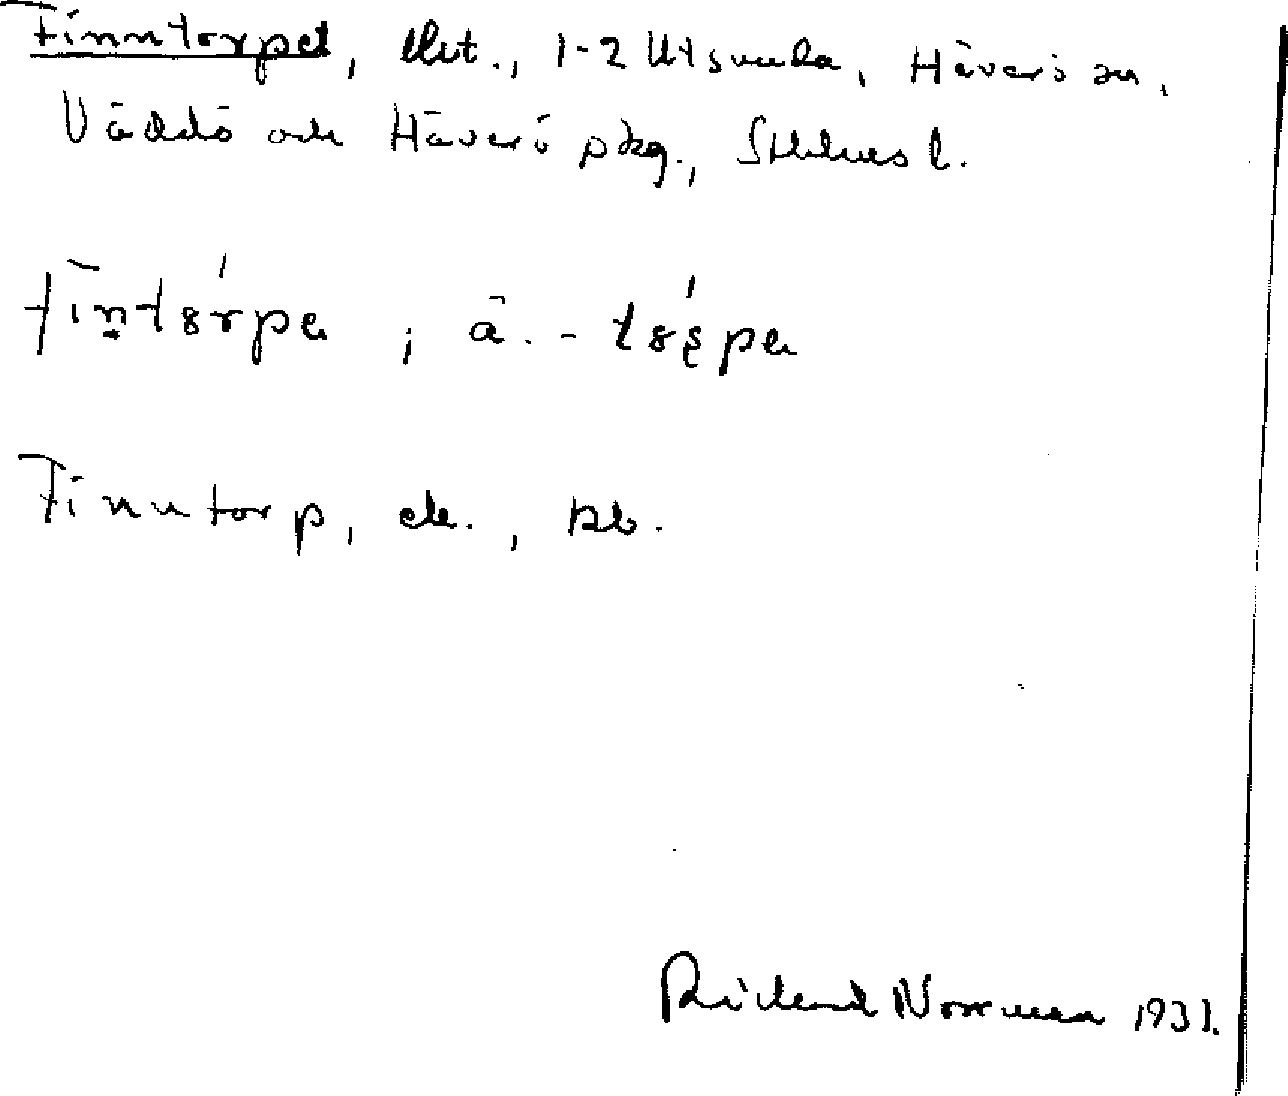 Finntorpet, lht., 1-2 Utsunda, Häverö sn,
Väddö och Häverö pkg., Sthlms l.
fintorpe, ä. -
Finntorp, ek., kb.
Rickard Norrman 1931.